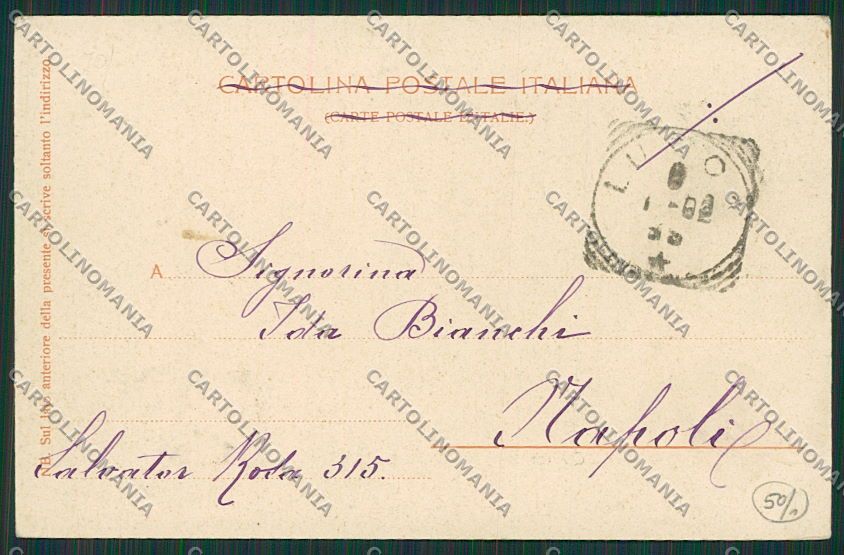 CARTOLINA POSTALE ITALIANA
(CARTE POSTALE D'ITALIE.)
NB. Sul lato anteriore della presente si scrive soltanto l'indirizzo.
A Signorina
Ida Bianchi
Napoli
Salvator Rosa 315.
CARTOLINOMANIA